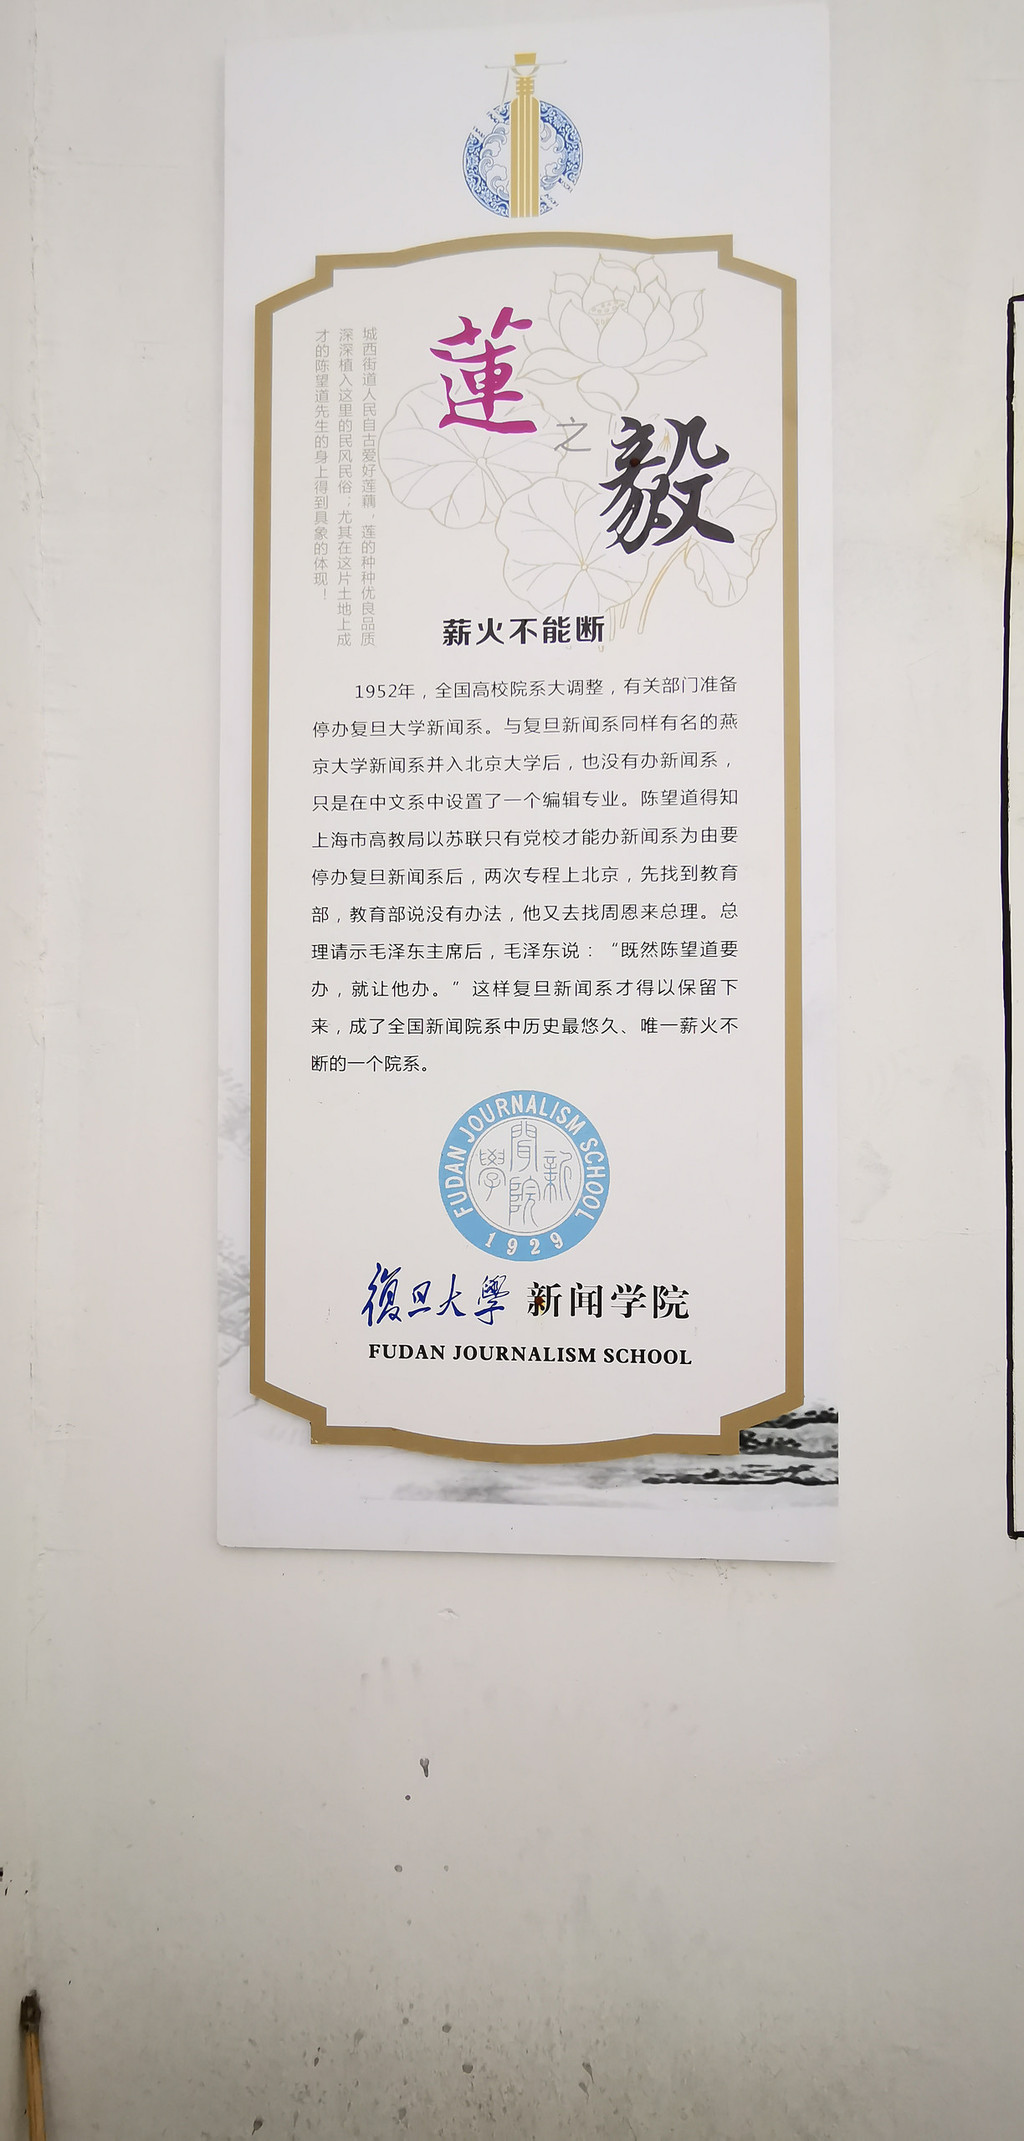 蓮
之
毅
城西街道人民自古爱好莲藕，莲的种种优良品质
深深植入这里的民风民俗；尤其在这片土地上成
才的陈望道先生的身上得到具象的体现！
薪火不能断
1952年，全国高校院系大调整，有关部门准备
停办复旦大学新闻系。与复旦新闻系同样有名的燕
京大学新闻系并入北京大学后，也没有办新闻系，
只是在中文系中设置了一个编辑专业。陈望道得知
上海市高教局以苏联只有党校才能办新闻系为由要
停办复旦新闻系后，两次专程上北京，先找到教育
部，教育部说没有办法，他又去找周恩来总理。总
理请示毛泽东主席后，毛泽东说：“既然陈望道要
办，就让他办。”这样复旦新闻系才得以保留下
来，成了全国新闻院系中历史最悠久、唯一薪火不
断的一个院系。
FUDAN JOURNALISM SCHOOL
新聞學院
1929
復旦大學 新闻学院
FUDAN JOURNALISM SCHOOL